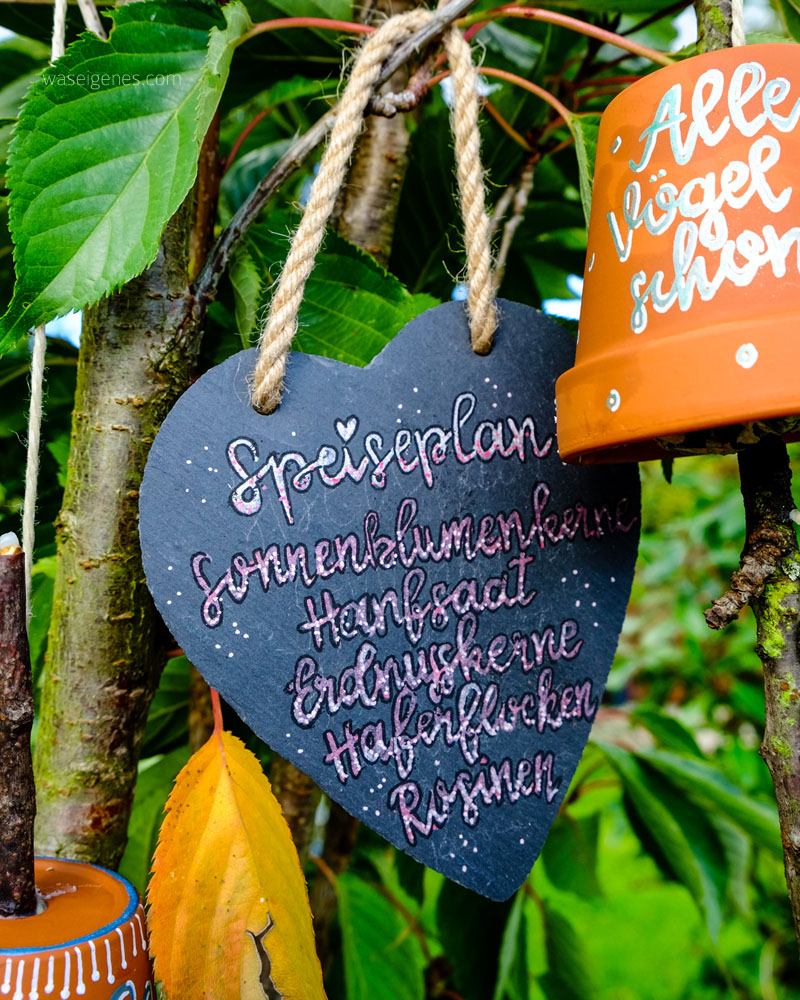 waseigenes.com
Alle
Vögel
schon
Speiseplan
Sonnenblumenkerne
Hanfsaat
Erdnusskerne
Haferflocken
Rosinen